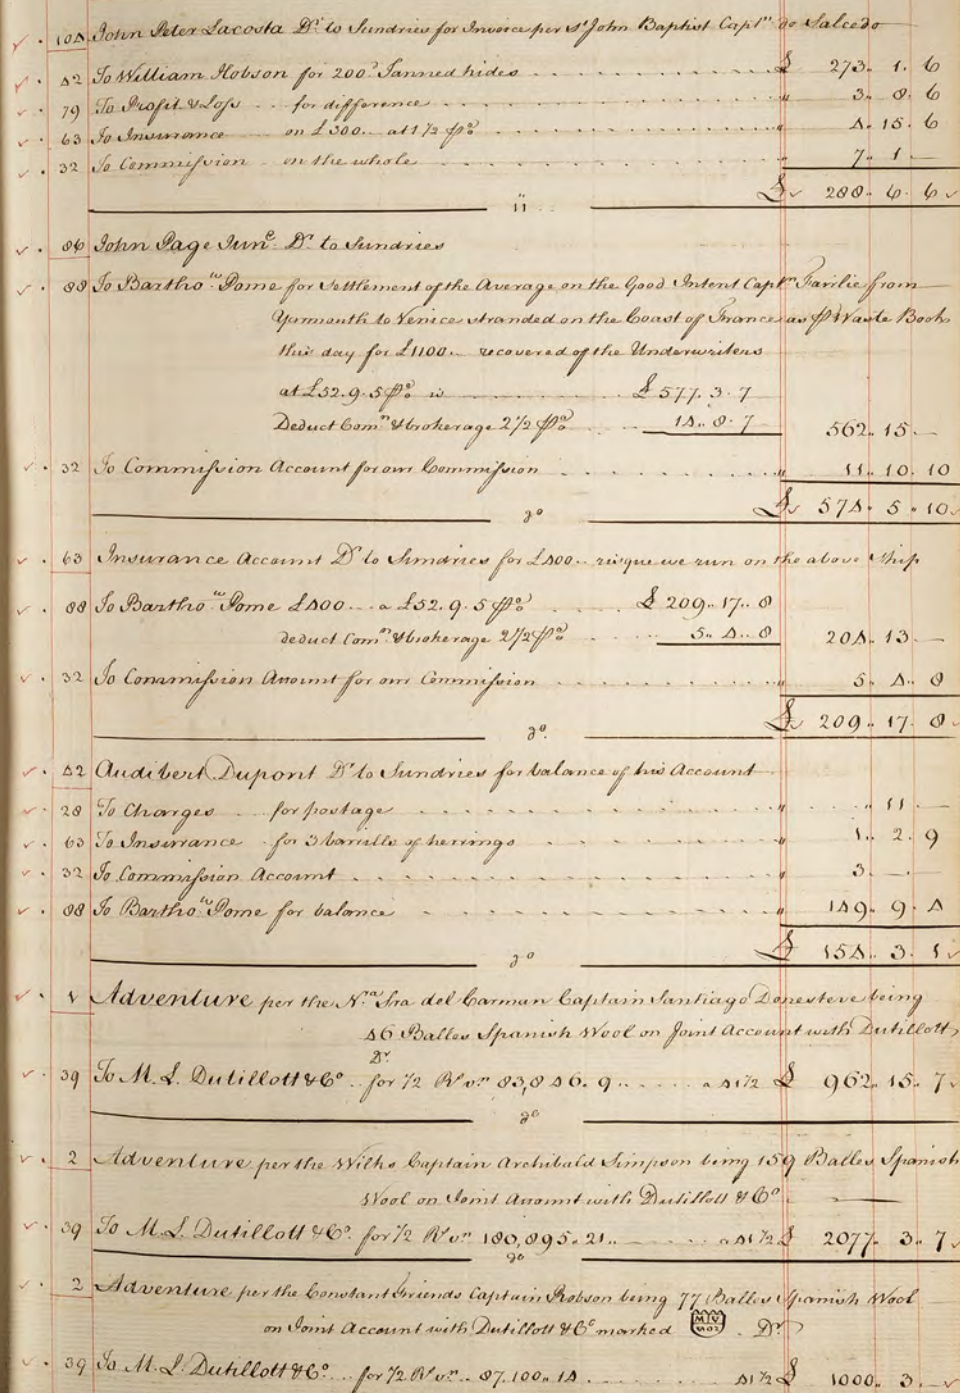 104 John Peter Lacosta Dr to Sundries for Invoice per St John Baptist Captn do Salcedo
42 To William Hobson for 200 Tanned hides £ 273. 1. 6
79 To Profit & Loss for difference " 3. 8. 6
63 To Insurance on £300.. at 1 1/2 p% " 4. 15. 6
32 To Commission on the whole " 7. 1. —
£ 288. 6. 6
11
86 John Page Junr Dr to Sundries
88 To Bartho.w Pome for Settlement of the Average on the Good Intent Captn Fairlie from
Yarmouth to Venice stranded on the Coast of France as p Waste Book
this day for £1100.. recovered of the Underwriters
at £52. 9. 5 p% is £ 577. 3. 7
Deduct Comn & brokerage 2 1/2 p% 14. 8. 7 562. 15. —
32 To Commission Account for our Commission " 11. 10. 10
£ 574. 5. 10
do
63 Insurance Account Dr to Sundries for £400.. risque we run on the above Ship
88 To Bartho.w Pome £400.. a £52. 9. 5 p% £ 209. 17. 8
deduct Comn & brokerage 2 1/2 p% 5. 4. 8 204. 13. —
32 To Commission Account for our Commission " 5. 4. 8
£ 209. 17. 8
do
42 Audibert Dupont Dr to Sundries for balance of his Account
28 To Charges for postage " 11. —
63 To Insurance for 3 barills of herrings " 1. 2. 9
32 To Commission Account " 3. —. —
88 To Bartho.w Pome for balance " 149. 9. 4
£ 154. 3. 1
do
1 Adventure per the N.ra Sra del Carman Captain Santiago Donesteve being
46 Balles Spanish Wool on Joint Account with Dutillott
Dr.
39 To M. L. Dutillott & Co. for 1/2 Rs vn 83,846. 9.. a 41 1/2 £ 962. 15. 7
do
2 Adventure per the Wilks Captain Archibald Simpson being 159 Balles Spanish
Wool on Joint Account with Dutillott & Co
39 To M. L. Dutillott & Co. for 1/2 Rs vn 180,895. 21.. a 41 1/2 £ 2077. 3. 7
do
2 Adventure per the Constant Friends Captain Robson being 77 Balles Spanish Wool
on Joint Account with Dutillott & Co marked Dr
39 To M. L. Dutillott & Co. for 1/2 Rs vn.. 87.100.. 14 41 1/2 £ 1000. 3. —